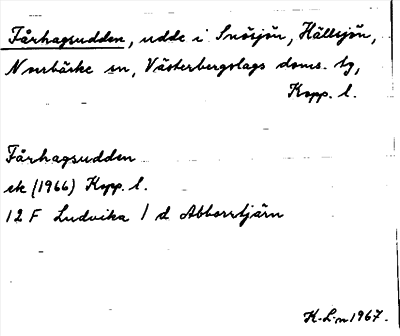 Fårhagsudden, udde i Snösjön, Hällsjön,
Norrbärke sn, Västerbergslags doms. tg,
Kopp. l.
Fårhagsudden
ek (1966) Kopp. l.
12 F Ludvika 1 d Abborrtjärn
K.L:n 1967.